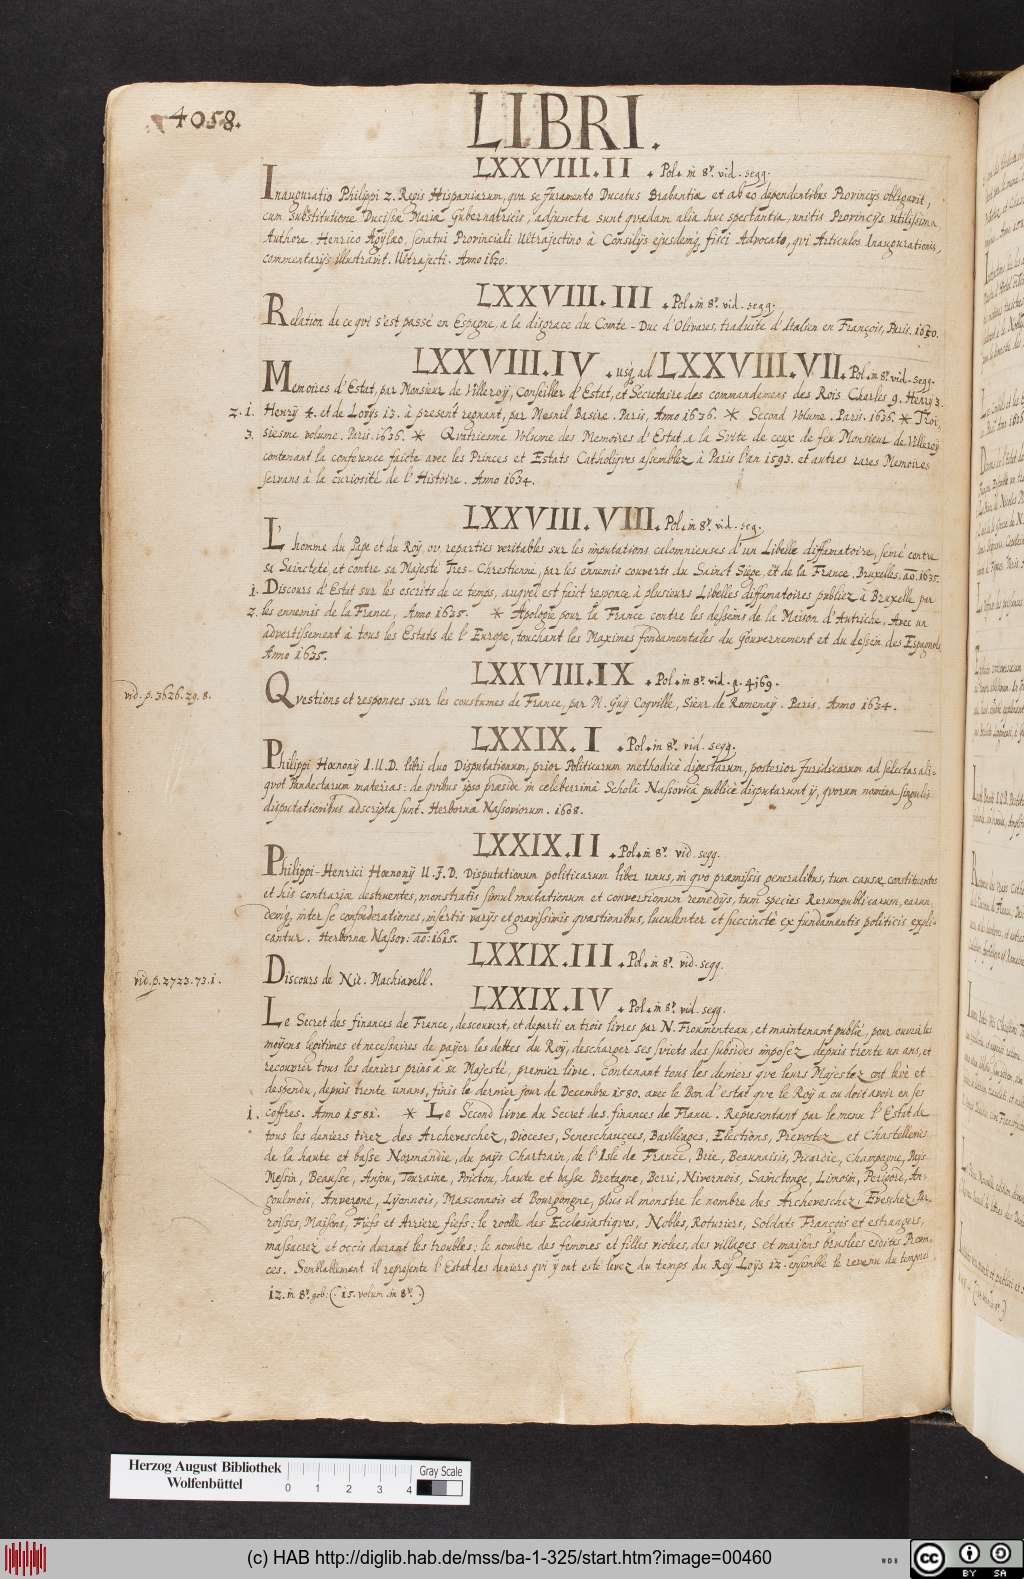 4058.
LIBRI.
LXXVIII.II . Pol. in 8º. vid. segg.
Inauguratio Philippi 2. Regis Hispaniarum, qua se Juramento Ducatus Brabantiæ et ab eo dependentibus Provincijs obligavit,
cum substitutione Ducissæ Mariæ Gubernatricis, adjuncta sunt quædam alia huc spectantia, unitis Provincijs utilissima,
Authore Henrico Agylæo, senatui Provinciali Ultrajectino à Consilijs ejusdemq. fisci Advocato, qvi Articulos Inaugurationis,
commentarijs illustravit. Ultrajecti. Anno 1620.
LXXVIII.III . Pol. in 8º. vid. segg.
Relation de ce qvi s'est passé en Espagne, a la disgrace du Comte-Duc d'Olivares, traduite d'Italien en François, Paris. 1650.
LXXVIII.IV . usq. ad LXXVIII.VII. Pol. in 8º. vid. segg.
Memoires d'Estat, par Monsieur de Villeroÿ, Conseiller d'Estat, et Secretaire des commandemens des Rois Charles 9. Henrÿ 3.
2. 1. Henrÿ 4. et de Loÿs 13. à present regnant, par Mesnil Basire. Paris, Anno 1636. * Second Volume. Paris. 1636. * Troi,
3. siesme volume. Paris. 1636. * Qvatriesme Volume des Memoires d'Estat, a la Svite de ceux de feu Monsieur de Villeroÿ
contenant la conference faicte avec les Princes et Estats Catholiqves assemblez à Paris l'an 1593. et autres rares Memoires
servans à la curiosité de l'Histoire. Anno 1634.
LXXVIII.VIII. Pol. in 8º. vid. seg.
L'homme du Pape et du Roÿ, ou reparties veritables sur les imputations calomnienses d'un Libelle diffamatoire, semé contre
sa Sainctete, et contre sa Majesté Tres-Chrestienne, par les ennemis couverts du Sainct Siege, et de la France. Bruxelles. ao. 1635.
1. Discours d'Estat sur les escrits de ce temps, auqvel est faict responce à plusieurs Libelles diffamatoires publiez à Bruxelle par
2. les ennemis de la France, Anno 1635. * Apologie pour la France contre les desseins de la Maison d'Autriche. Avec un
advertissement à tous les Estats de l'Europe, touchant les Maximes fondamentales du gouvernement et du dessein des Espagnols
Anno 1635.
LXXVIII.IX . Pol. in 8º. vid. p. 4169.
vid. p. 3626. 29. 8.
Qvestions et responses sur les coustumes de France, par M. Guÿ Coqville, Sieur de Romenaÿ. Paris. Anno 1634.
LXXIX. I . Pol. in 8º. vid. segg.
Philippi Hœnonÿ I.U.D. libri duo Disputationum, prior Politicarum methodicè digestarum, posterior Juridicarum ad selectas ali-
qvot Pandectarum materias: de qvibus ipso præside in celeberrimâ Scholâ Nassovicâ publicè disputarunt ÿ, qvorum nomina singulis
disputationibus adscripta sunt. Herbornæ Nassoviorum. 1608.
LXXIX.II . Pol. in 8º. vid. segg.
Philippi-Henrici Hœnonÿ U.J.D. Disputationum politicarum liber unus, in qvo præmissis generalibus, tum causæ constituentes
et his contrariæ destruentes, monstratis simul mutationum et conversionum remedÿs, tum species Rerumpublicarum, earun
demq. inter se confœderationes, insertis varijs et gravissimis quæstionibus, luculenter et succinctè ex fundamentis politicis expli-
cantur. Herbornæ Nassov: ao: 1615.
LXXIX.III . Pol. in 8º. vid. segg.
Discours de Nic. Machiavell.
vid. p. 2723. 73. 1.
LXXIX.IV . Pol. in 8º. vid. segg.
Le Secret des finances de France, descouvert, et departi en trois livres par N. Froumenteau, et maintenant publié, pour ouvrir les
moÿens legitimes et necessaires de paÿer les dettes du Roÿ, descharger ses suiets des subsides imposez depuis trente un ans, et
recouvrer tous les deniers prins à sa Majesté, premier livre. Contenant tous les deniers qve leurs Majestez ont levé et
despendu, depuis trente un ans, finis le dernier jour de Decembre 1580. avec le Bon d'estat qve le Roÿ a ou doit avoir en ses
1. coffres. Anno 1581. * Le Second livre du Secret des finances de France. Representant par le menu l'Estat de
tous les deniers tirez des Archeveschez, Dioceses, Seneschaucees, Bailliages, Elections, Prevostez et Chastellenies
de la haute et basse Normandie, du paÿs Chartrain, de l'Isle de France, Brie, Beauvaisis, Picardie, Champagne, Paÿs
Messin, Beausse, Anjou, Touraine, Poictou, haute et basse Bretagne, Berri, Nivernois, Sainctonge, Limosin, Perigord, An-
goulmois, Auvergne, Lyonnois, Masconnois et Bourgongne, plus il monstre le nombre des Archeveschez, Eveschez, Par,
roisses, Maisons, Fiefs et Arriere fiefs: le roolle des Ecclesiastiqves, Nobles, Roturiers, Soldats François et estrangers,
massacrez et occis durant les troubles: le nombre des femmes et filles violees, des villages et maisons bruslees esdites Provin,
ces. Semblablement il represente l'Estat des deniers qvi ÿ ont esté levez du temps du Roÿ Loÿs 12. ensemble le revenu du temporel
12. in 8º. geb: (: 15. volum. in 8º. :)
Herzog August Bibliothek
Wolfenbüttel
0 1 2 3 4
Gray Scale
(c) HAB http://diglib.hab.de/mss/ba-1-325/start.htm?image=00460
WDB
CC BY SA